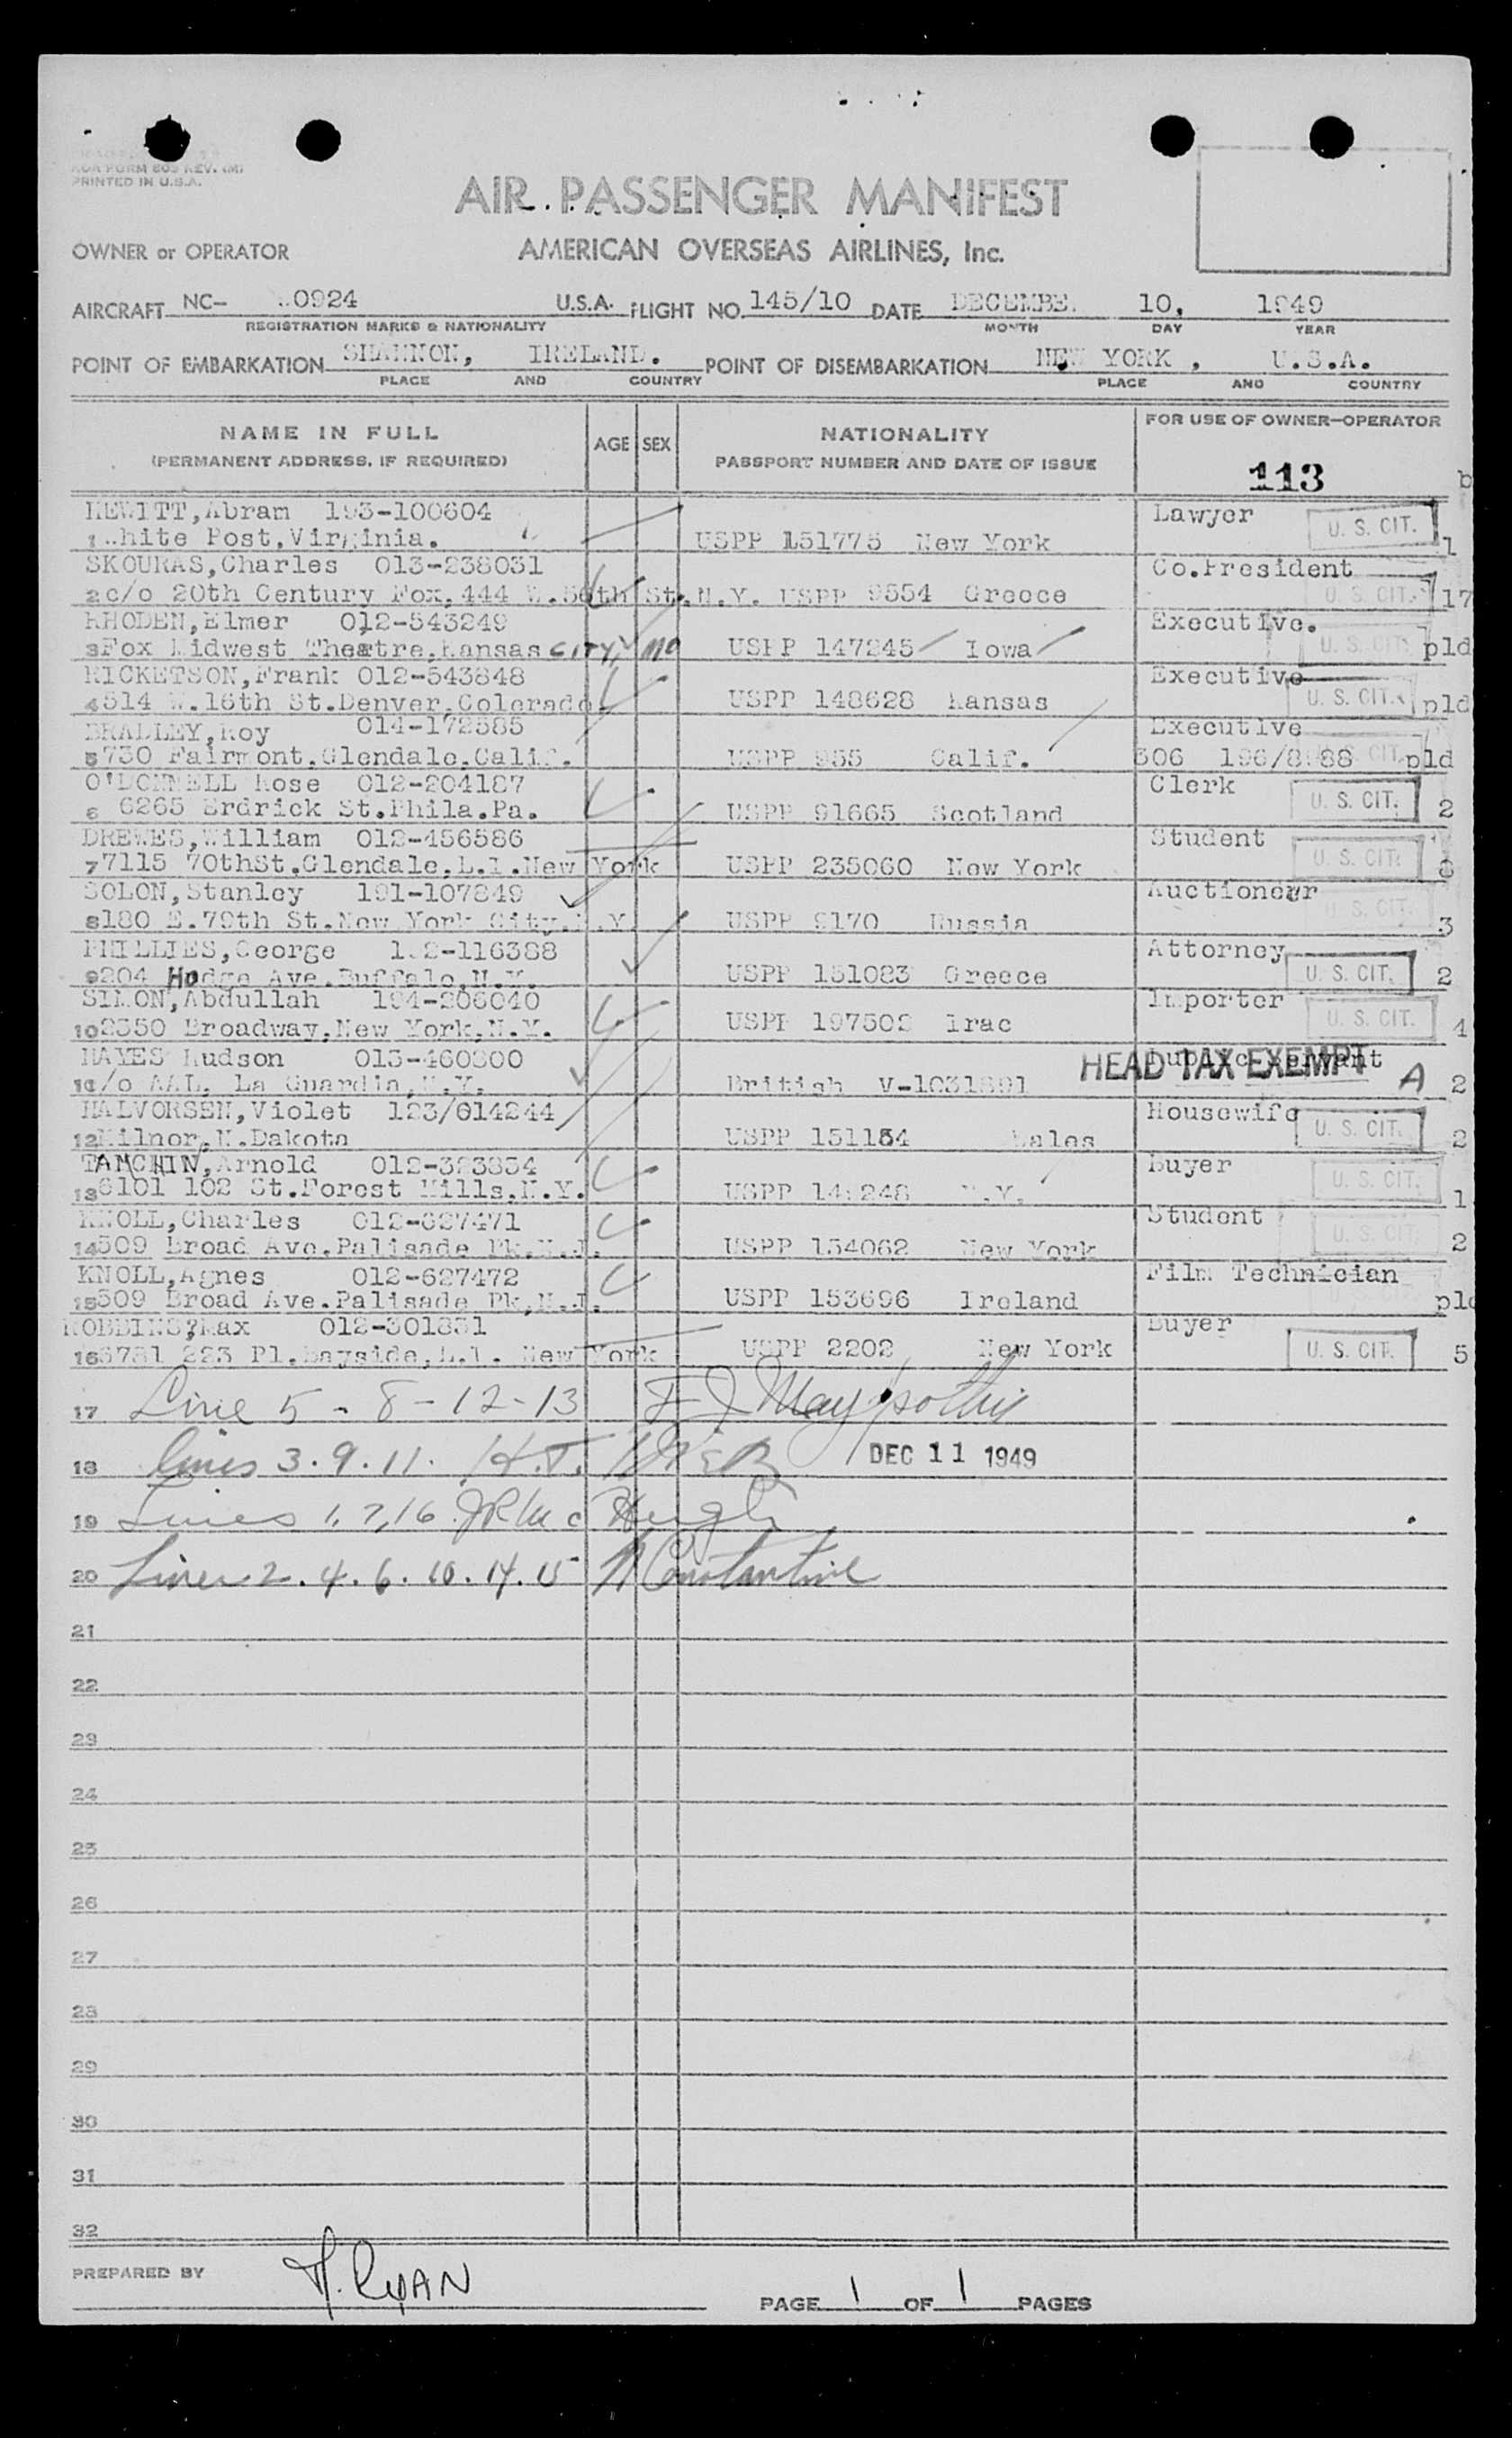 PRINTED IN U.S.A.
AIR PASSENGER MANIFEST
OWNER or OPERATOR AMERICAN OVERSEAS AIRLINES, Inc.
AIRCRAFT NC- 0924 U.S.A. FLIGHT NO. 145/10 DATE DECEMBE. 10, 1949
REGISTRATION MARKS & NATIONALITY MONTH DAY YEAR
POINT OF EMBARKATION SHANNON, IRELAND. POINT OF DISEMBARKATION NEW YORK, U.S.A.
PLACE AND COUNTRY PLACE AND COUNTRY
NAME IN FULL AGE SEX NATIONALITY FOR USE OF OWNER-OPERATOR
(PERMANENT ADDRESS, IF REQUIRED) PASSPORT NUMBER AND DATE OF ISSUE
113 b
HEWITT, Abram 193-100604 Lawyer U. S. CIT.
1 White Post, Virginia. USPP 151775 New York 1
SKOURAS, Charles 013-238031 Co.President
2 c/o 20th Century Fox, 444 W.56th St. N.Y. USPP 9554 Greece U. S. CIT. 17
RHODEN, Elmer 012-543249 Executive.
3 Fox Midwest Theatre, Kansas CITY, MO USPP 147245 Iowa U. S. CIT. pld
RICKETSON, Frank 012-543848 Executive
4 514 W. 16th St. Denver, Colorado USPP 148628 Kansas U. S. CIT. pld
BRADLEY, Roy 014-172585 Executive
5 730 Fairmont. Glendale, Calif. USPP 955 Calif. 306 196/8 88 U. S. CIT. pld
O'DONNELL Rose 012-204187 Clerk
6 6265 Erdrick St. Phila. Pa. USPP 91665 Scotland U. S. CIT. 2
DREWES, William 012-456586 Student
7 7115 70thSt. Glendale, L.I. New York USPP 235060 New York U. S. CIT.
SOLON, Stanley 191-107849 Auctioneer
8 180 E. 79th St. New York City, N.Y. USPP 9170 Russia U. S. CIT. 3
PHILLIES, George Attorney
9 204 Hodge Ave. Buffalo, N.Y. USPP 151083 Greece U. S. CIT. 2
SIMON, Abdullah 194-206040 Importer
10 2350 Broadway, New York, N.Y. USPP 197502 Irac U. S. CIT. 4
HAYES Hudson HEAD TAX EXEMPT
11 c/o AAL, La Guardia, N.Y. British A 2
HALVORSEN, Violet 123/614244 Housewife
12 Milnor, N. Dakota USPP 151154 Wales U. S. CIT. 2
TAMCHIN, Arnold 012-323834 Buyer
13 6101 102 St. Forest Hills, N.Y. N.Y. U. S. CIT. 1
KNOLL, Charles 012-627471 Student
14 509 Broad Ave. Palisade Pk. N.J. USPP 154062 New York U. S. CIT. 2
KNOLL, Agnes 012-627472 Film Technician
15 509 Broad Ave. Palisade Pk, N.J. USPP 153696 Ireland pld
ROBBINS, Max 012-301831 Buyer
16 223 Pl. Bayside, L.I. New York USPP 2202 New York U. S. CIT. 5
17 Line 5 - 8 - 12 - 13
18 lines 3. 9. 11. DEC 11 1949
19 Lines 1, 7, 16. J R McHugh
20 Lines 2. 4. 6. 10. 14. 15 N Constantine
21
22
23
24
25
26
27
28
29
30
31
32
PREPARED BY RYAN
PAGE 1 OF 1 PAGES